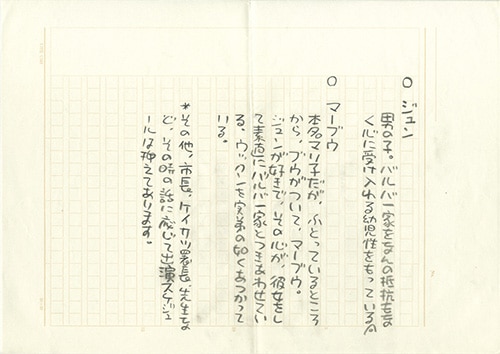 ○ ジュン
男の子。バルバ一家をなんの抵抗もな
く心に受け入れる幼児性をもっている。
○ マーブウ
本名マリ子だが、ふとっているところ
から、ブウがついて、マーブウ。
ジュンが好きで、その心が、彼女をし
て素直にバルバ一家とつきあわせてい
る。ウックンを実弟の如くあつかって
いる。
*その他、市長、ケイサツ署長、先生な
ど、その時の話に応じて出演スケジュ
ールは抑えてあります。